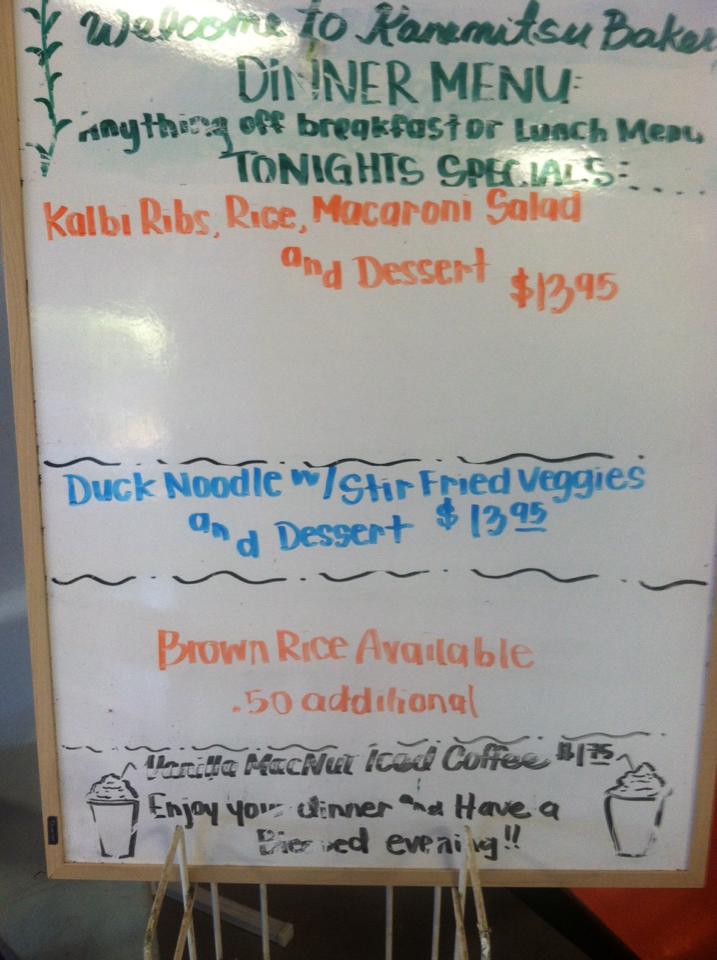 Welcome to Kanemitsu Baker
DINNER MENU:
Anything off breakfast or Lunch Menu
TONIGHTS SPECIALS:....
Kalbi Ribs, Rice, Macaroni Salad
and Dessert $13.95
Duck Noodle w/ Stir Fried Veggies
and Dessert $13.95
Brown Rice Available
.50 additional
Vanilla MacNut Iced Coffee $1.75
Enjoy your dinner and Have a
Blessed evening!!